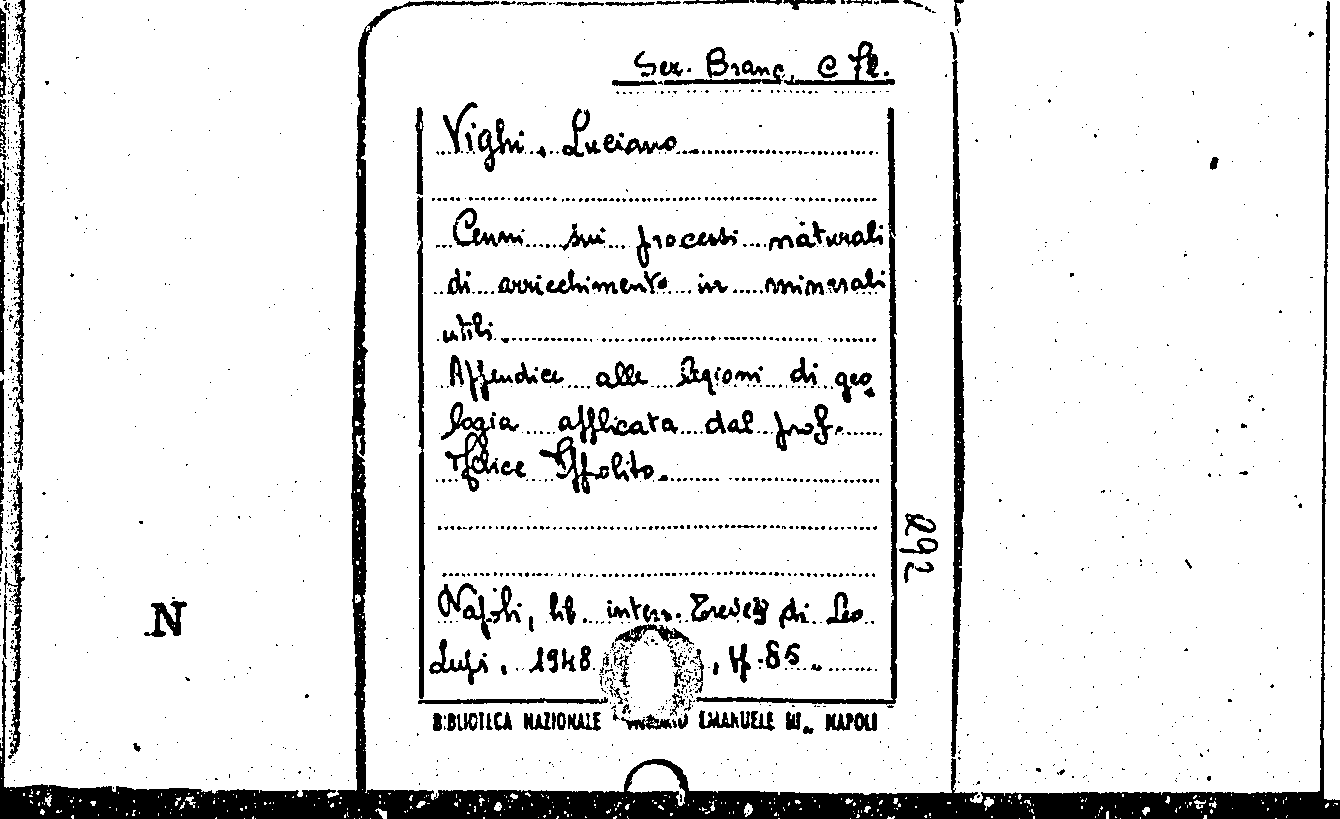 Ser. Branc. C
Vighi, Luciano
Cenni sui processi naturali
di arricchimento in minerali
utili.
Appendice alle lezioni di geo
logia applicata dal prof.
Felice Ippolito.
Napoli, lib. intern. Treves di Leo
Lupi, 1948, pp. 85.
BIBLIOTECA NAZIONALE EMANUELE III„ NAPOLI
292
N